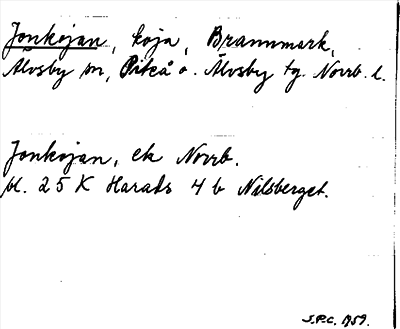 Jonkojan, koja, Brännmark,
Älvsby sn, Piteå o. Älvsby tg. Norrb. l.
Jonkojan, ek Norrb.
bl. 25 K Harads 4 b Nilsberget.
S.P.C. 1959.